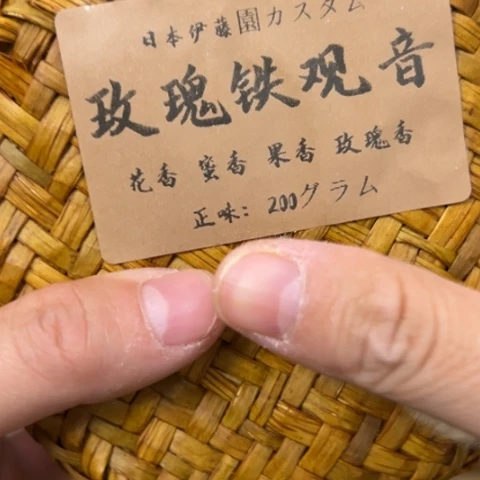 日本伊藤園カスタム
玫瑰铁观音
花香 蜜香 果香 玫瑰香
正味: 200グラム